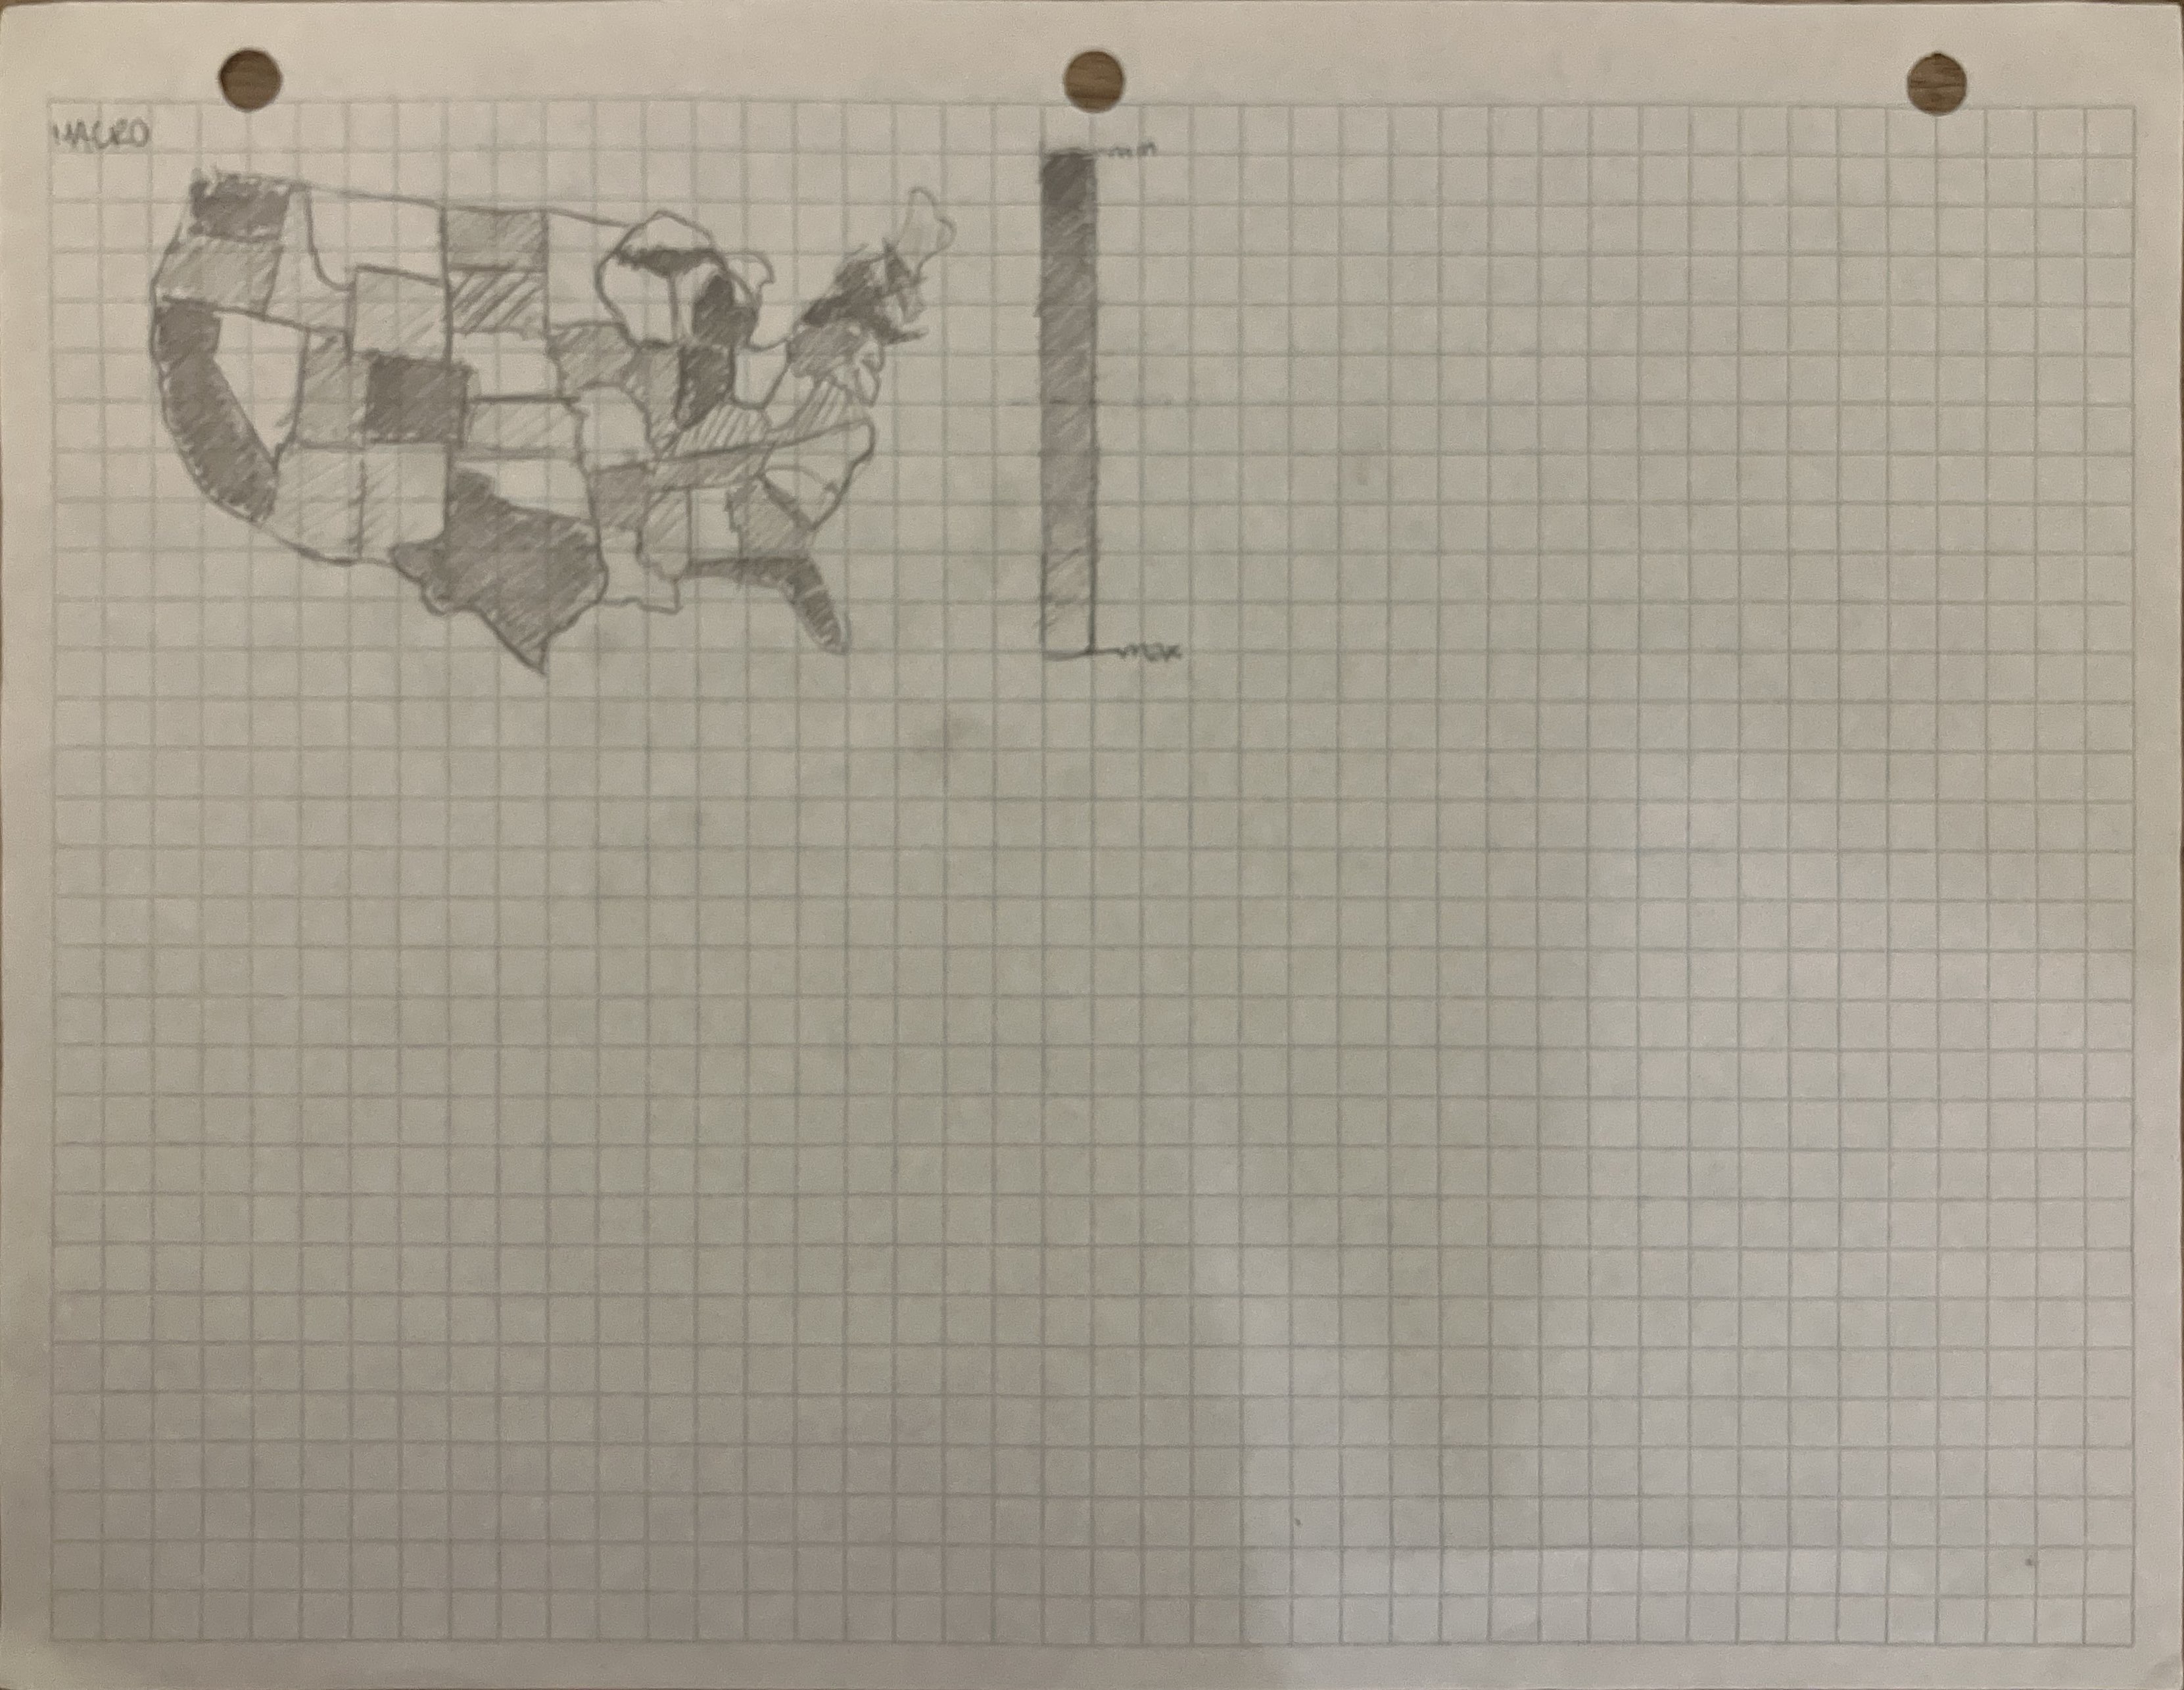 MACRO
min
max